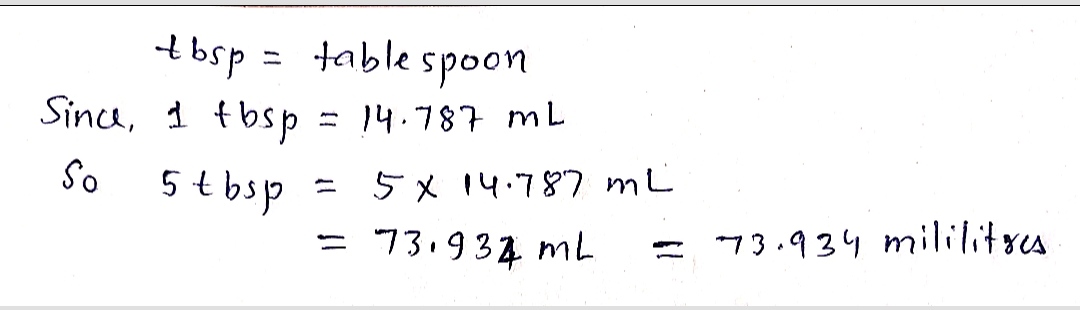 tbsp = tablespoon
Since, 1 tbsp = 14.787 mL
So 5 tbsp = 5 x 14.787 mL
= 73.934 mL = 73.934 mililitres